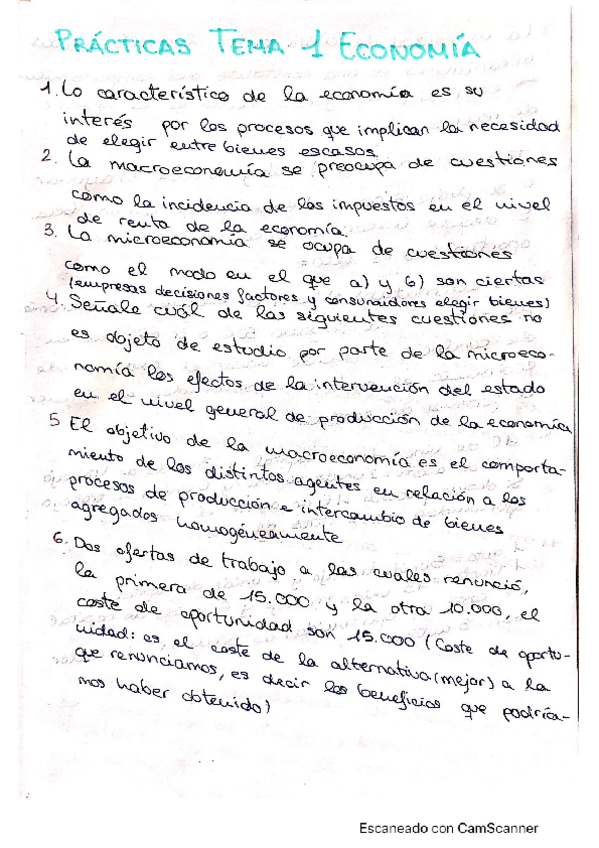 PRÁCTICAS TEMA 1 ECONOMÍA
1. Lo característico de la economía es su
interés por los procesos que implican la necesidad
de elegir entre bienes escasos
2. La macroeconomía se preocupa de cuestiones
como la incidencia de los impuestos en el nivel
de renta de la economía.
3. La microeconomía se ocupa de cuestiones
como el modo en el que a) y b) son ciertas
(empresas decisiones factores y consumidores elegir bienes)
4. Señale cuál de las siguientes cuestiones no
es objeto de estudio por parte de la microeco-
nomía los efectos de la intervención del estado
en el nivel general de producción de la economía
5 El objetivo de la macroeconomía es el comporta-
miento de los distintos agentes en relación a los
procesos de producción e intercambio de bienes
agregados homogéneamente
6. Dos ofertas de trabajo a las cuales renunció,
la primera de 15.000 y la otra 10.000, el
coste de oportunidad son 15.000 (Coste de oportu-
nidad: es el coste de la alternativa (mejor) a la
que renunciamos, es decir los beneficios que podría-
mos haber obtenido)
Escaneado con CamScanner